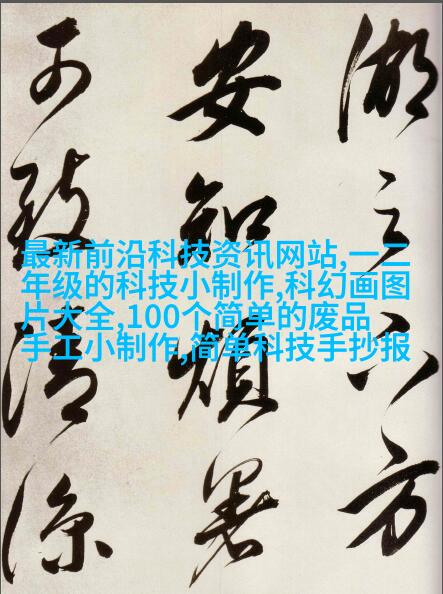 最新前沿科技资讯网站,一二
年级的科技小制作,科幻画图
片大全,100个简单的废品
手工小制作,简单科技手抄报
湖之方
安知烦暑
可致清凉